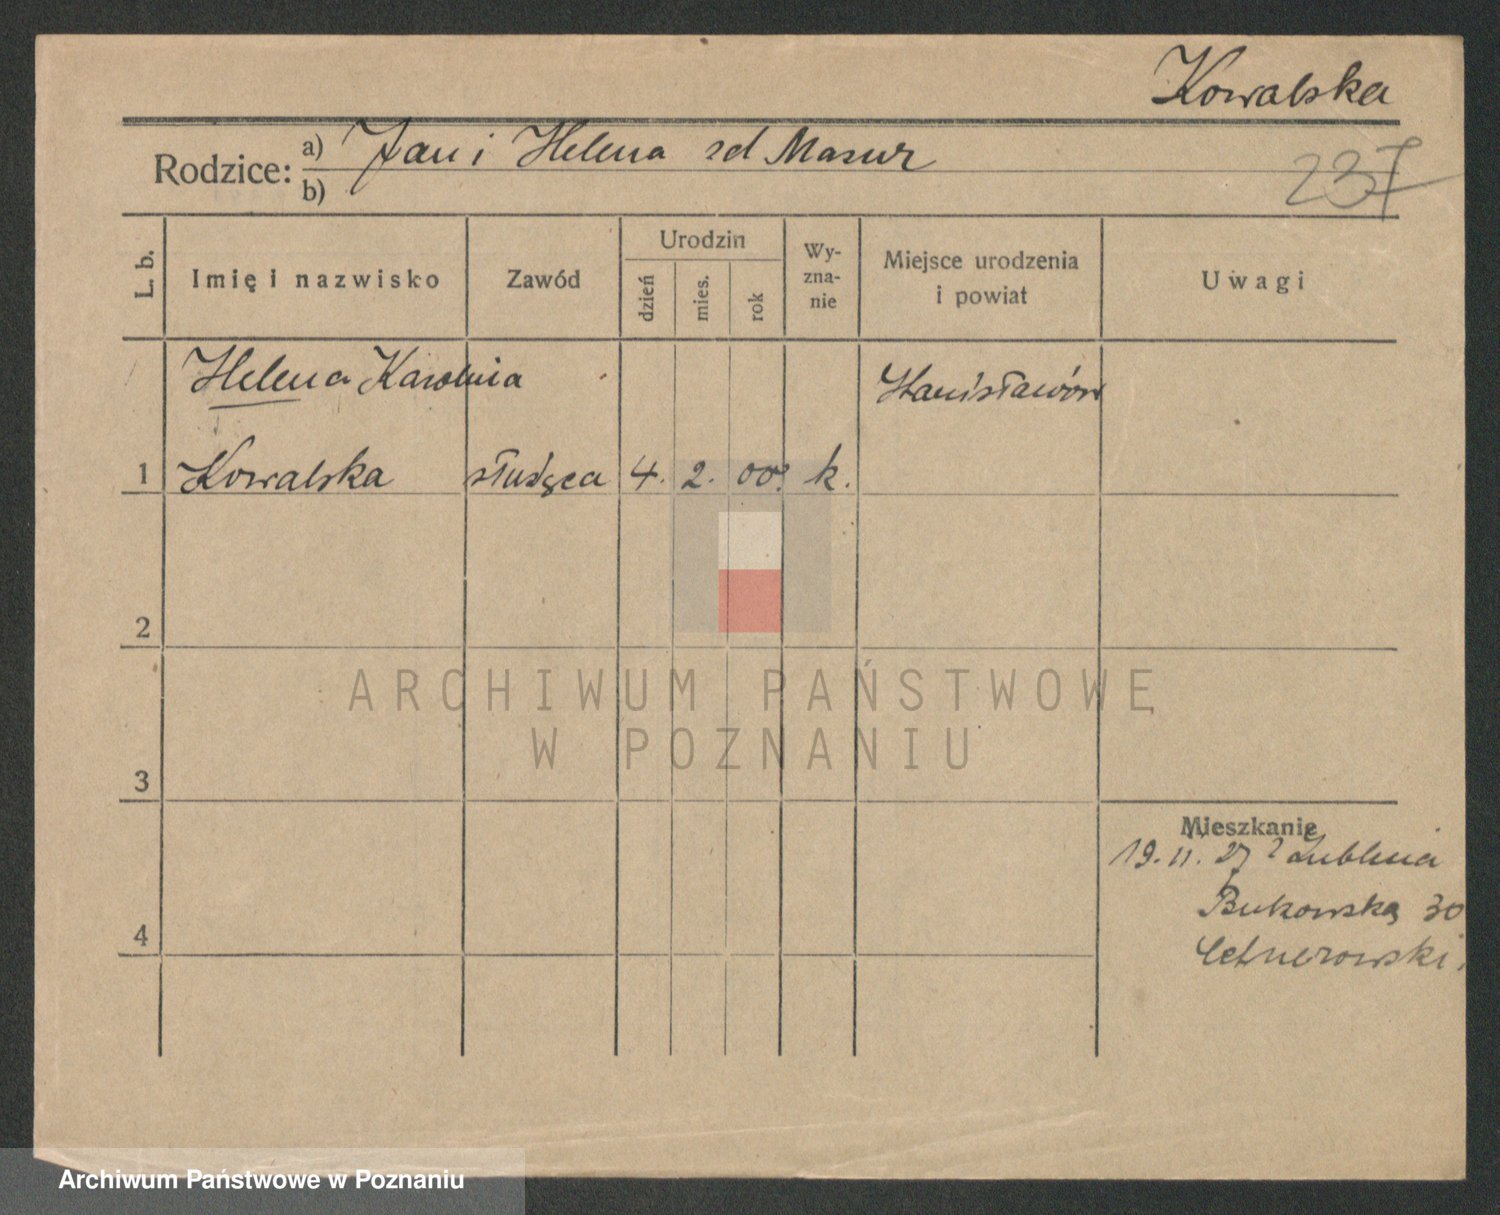 Kowalska
Rodzice: a) Jan i Helena zd Mazur
b)
237
L. b. Imię i nazwisko Zawód Urodzin dzień mies. rok Wy-zna-nie Miejsce urodzenia i powiat Uwagi
Helena Karolina Stanisławów
1 Kowalska służąca 4. 2. 00. k.
2
3
4
Mieszkanie
19. 11. 27 z Lublina
Bukowska 30
Cetnerowski.
ARCHIWUM PAŃSTWOWE
W POZNANIU
Archiwum Państwowe w Poznaniu